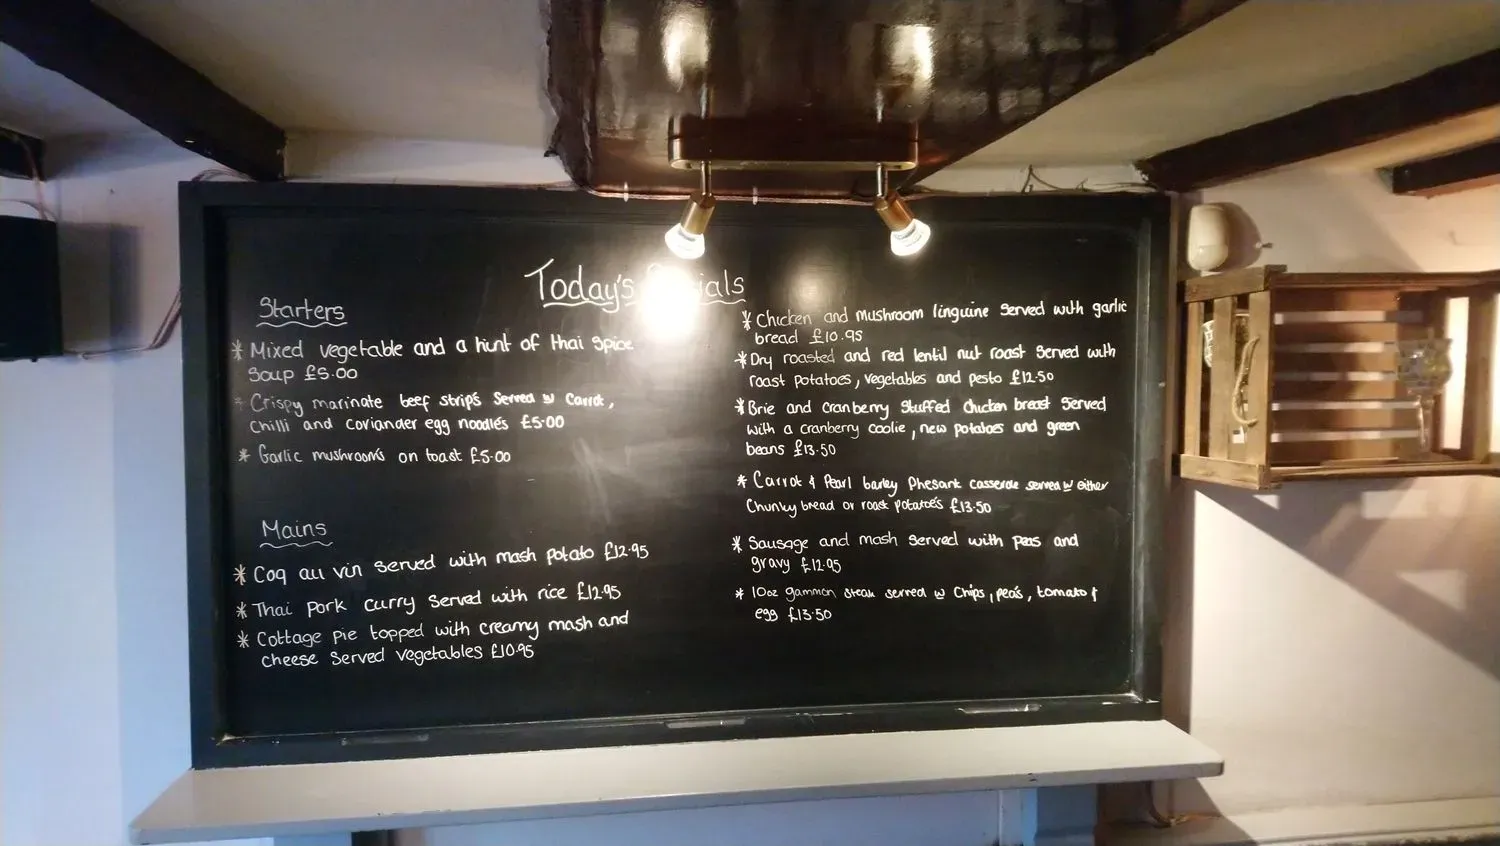 Today's Specials
Starters
* Mixed vegetable and a hint of thai spice
Soup £5.00
* Crispy marinate beef strips Served w Carrot,
Chilli and Coriander egg noodles £5.00
* Garlic mushrooms on toast £5.00
Mains
* Coq au vin served with mash potato £12.95
* Thai pork curry served with rice £12.95
* Cottage pie topped with creamy mash and
cheese served vegetables £10.95
* Chicken and mushroom linguine served with garlic
bread £10.95
* Dry roasted and red lentil nut roast served with
roast potatoes, vegetables and pesto £12.50
* Brie and cranberry stuffed chicken breast served
with a cranberry coolie, new potatoes and green
beans £13.50
* Carrot & Pearl barley Phesant casserole served w either
Chunky bread or roast potatoes £13.50
* Sausage and mash served with peas and
gravy £12.95
* 10oz gammon steak served w Chips, pea's, tomato &
egg £13.50